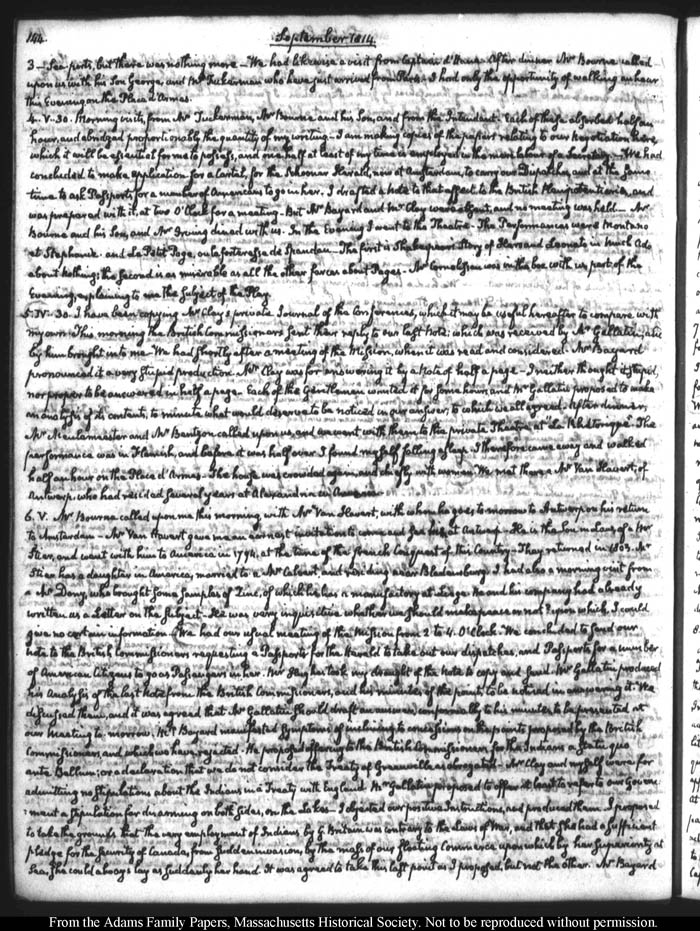 144
September 1814.
3 — Sea-ports, but there was nothing more — We had likewise a visit from Captain d'Haus. After dinner Mr Bourne called
upon us with his Son George, and Mr Tuckerman who have just arrived from Paris. I had only the opportunity of walking an hour
this Evening on the Place d'Armes.
4. V. 30. Morning visits, from Mr Tuckerman, Mr Bourne and his Son, and from the Intendant. Each of these absorbed half an
hour, and abridged proportionably the quantity of my writing — I am making copies of the papers relating to our negotiation here,
which it will be essential for me to possess, and one half at least of my time is employed in the mere labour of a Secretary — We had
concluded to make application for a Cartel, for the Schooner Herald, now at Amsterdam, to carry our Dispatches, and at the same
time to ask Passports for a number of Americans to go in her. I drafted a Note to that effect to the British Plenipotentiaries, and
was prepared with it, at two O'Clock for a meeting. But Mr Bayard and Mr Clay were absent, and no meeting was held — Mr
Bourne and his Son, and Mr Irving dined with us. In the Evening I went to the Theatre. The Performances were Montano
et Stephanie. and Le Petit Page, ou la forteresse de Spandau. The first is Shakespear's Story of Hero and Leonato in Much Ado
about Nothing; the Second is as miserable as all the other farces about Pages. Mr Cornelissen was in the box with us part of the
Evening, explaining to me the Subject of the Play.
5. IV. 30. I have been copying Mr Clay's private Journal of the Conferences, which it may be useful hereafter to compare with
my own. This morning the British Commissioners sent their reply to our last Note. which was received by Mr Gallatin, and
by him brought in to me. We had shortly after a meeting of the Mission, when it was read and considered. Mr Bayard
pronounced it a very stupid production. Mr Clay was for answering it by a Note of half a page — I neither thought it stupid,
nor proper to be answered in half a page. Each of the Gentlemen wanted it for some hours, and Mr Gallatin proposed to make
an analysis of its contents, to minute what would deserve to be noticed in our answer; to which we all agreed. After dinner,
Mr Meulemeester and Mr Bentzon called upon us, and we went with them to the private Theatre at La Rhetorique. The
performance was in Flemish, and before it was half over I found myself falling asleep. I therefore came away and walked
half an hour on the Place d'Armes. The house was crowded again, and chiefly with women. We met there a Mr Van Havert, of
Antwerp, who had resided several years at Alexandria in America.
6. V. Mr Bourne called upon me this morning with Mr Van Havert, with whom he goes to-morrow to Antwerp on his return
to Amsterdam — Mr Van Havert gave me an earnest invitation to come and see him at Antwerp. He is the Son in Law of a Mr
Stier, and went with him to America in 1794, at the time of the French Conquest of this Country. They returned in 1803. Mr
Stier has a daughter in America, married to a Mr Calvert, and residing near Bladensburg. I had also a morning visit from
a Mr Dony, who brought some samples of Zinc, of which he has a manufactory at Liege. He and his company had already
written us a Letter on the Subject. He was very inquisitive whether we should make peace or not? upon which, I could
give no certain information. We had our usual meeting of the Mission from 2 to 4. O'Clock. We concluded to send our
note to the British Commissioners requesting a Passport for the Herald to take out our dispatches, and Passports for a number
of American Citizens to go as Passengers in her. Mr Hughes took my draught of the Note to copy and send. Mr Gallatin produced
his Analysis of the last Note from the British Commissioners, and his minutes of the points to be noticed in answering it. We
discussed them, and it was agreed that Mr Gallatin should draft an answer, conformably to his minutes to be presented at
our meeting to-morrow. Mr Bayard manifested symptoms of inclining to concessions on the points proposed by the British
Commissioners, and which we have rejected. He proposed offering to the British Commissioners for the Indians a statu quo
ante Bellum; or a declaration that we do not consider the Treaty of Greenville as abrogated. Mr Clay and myself were for
admitting no Stipulations about the Indians in a Treaty with England. Mr Gallatin proposed to offer at least to refer to our Govern-
:ment a Stipulation for disarming on both sides, on the Lakes — I objected our positive Instructions, and produced them. I proposed
to take the grounds that the very employment of Indians by G. Britain was contrary to the Laws of War, and that she had a sufficient
pledge for the security of Canada, from sudden invasion, by the mass of our floating Commerce upon which by her superiority at
Sea, she could always lay as suddenly her hand. It was agreed to take this last point as I proposed, but not the other. Mr Bayard
From the Adams Family Papers, Massachusetts Historical Society. Not to be reproduced without permission.